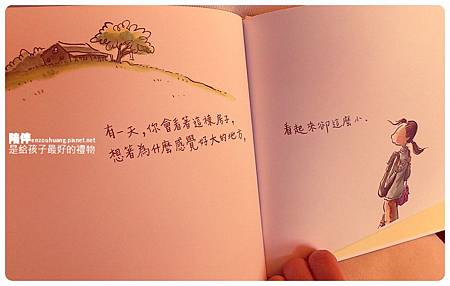 有一天,你會看著這棟房子,
想著為什麼感覺好大的地方,
看起來卻這麼小。
陪伴enzoushuang.pixnet.net
是給孩子最好的禮物